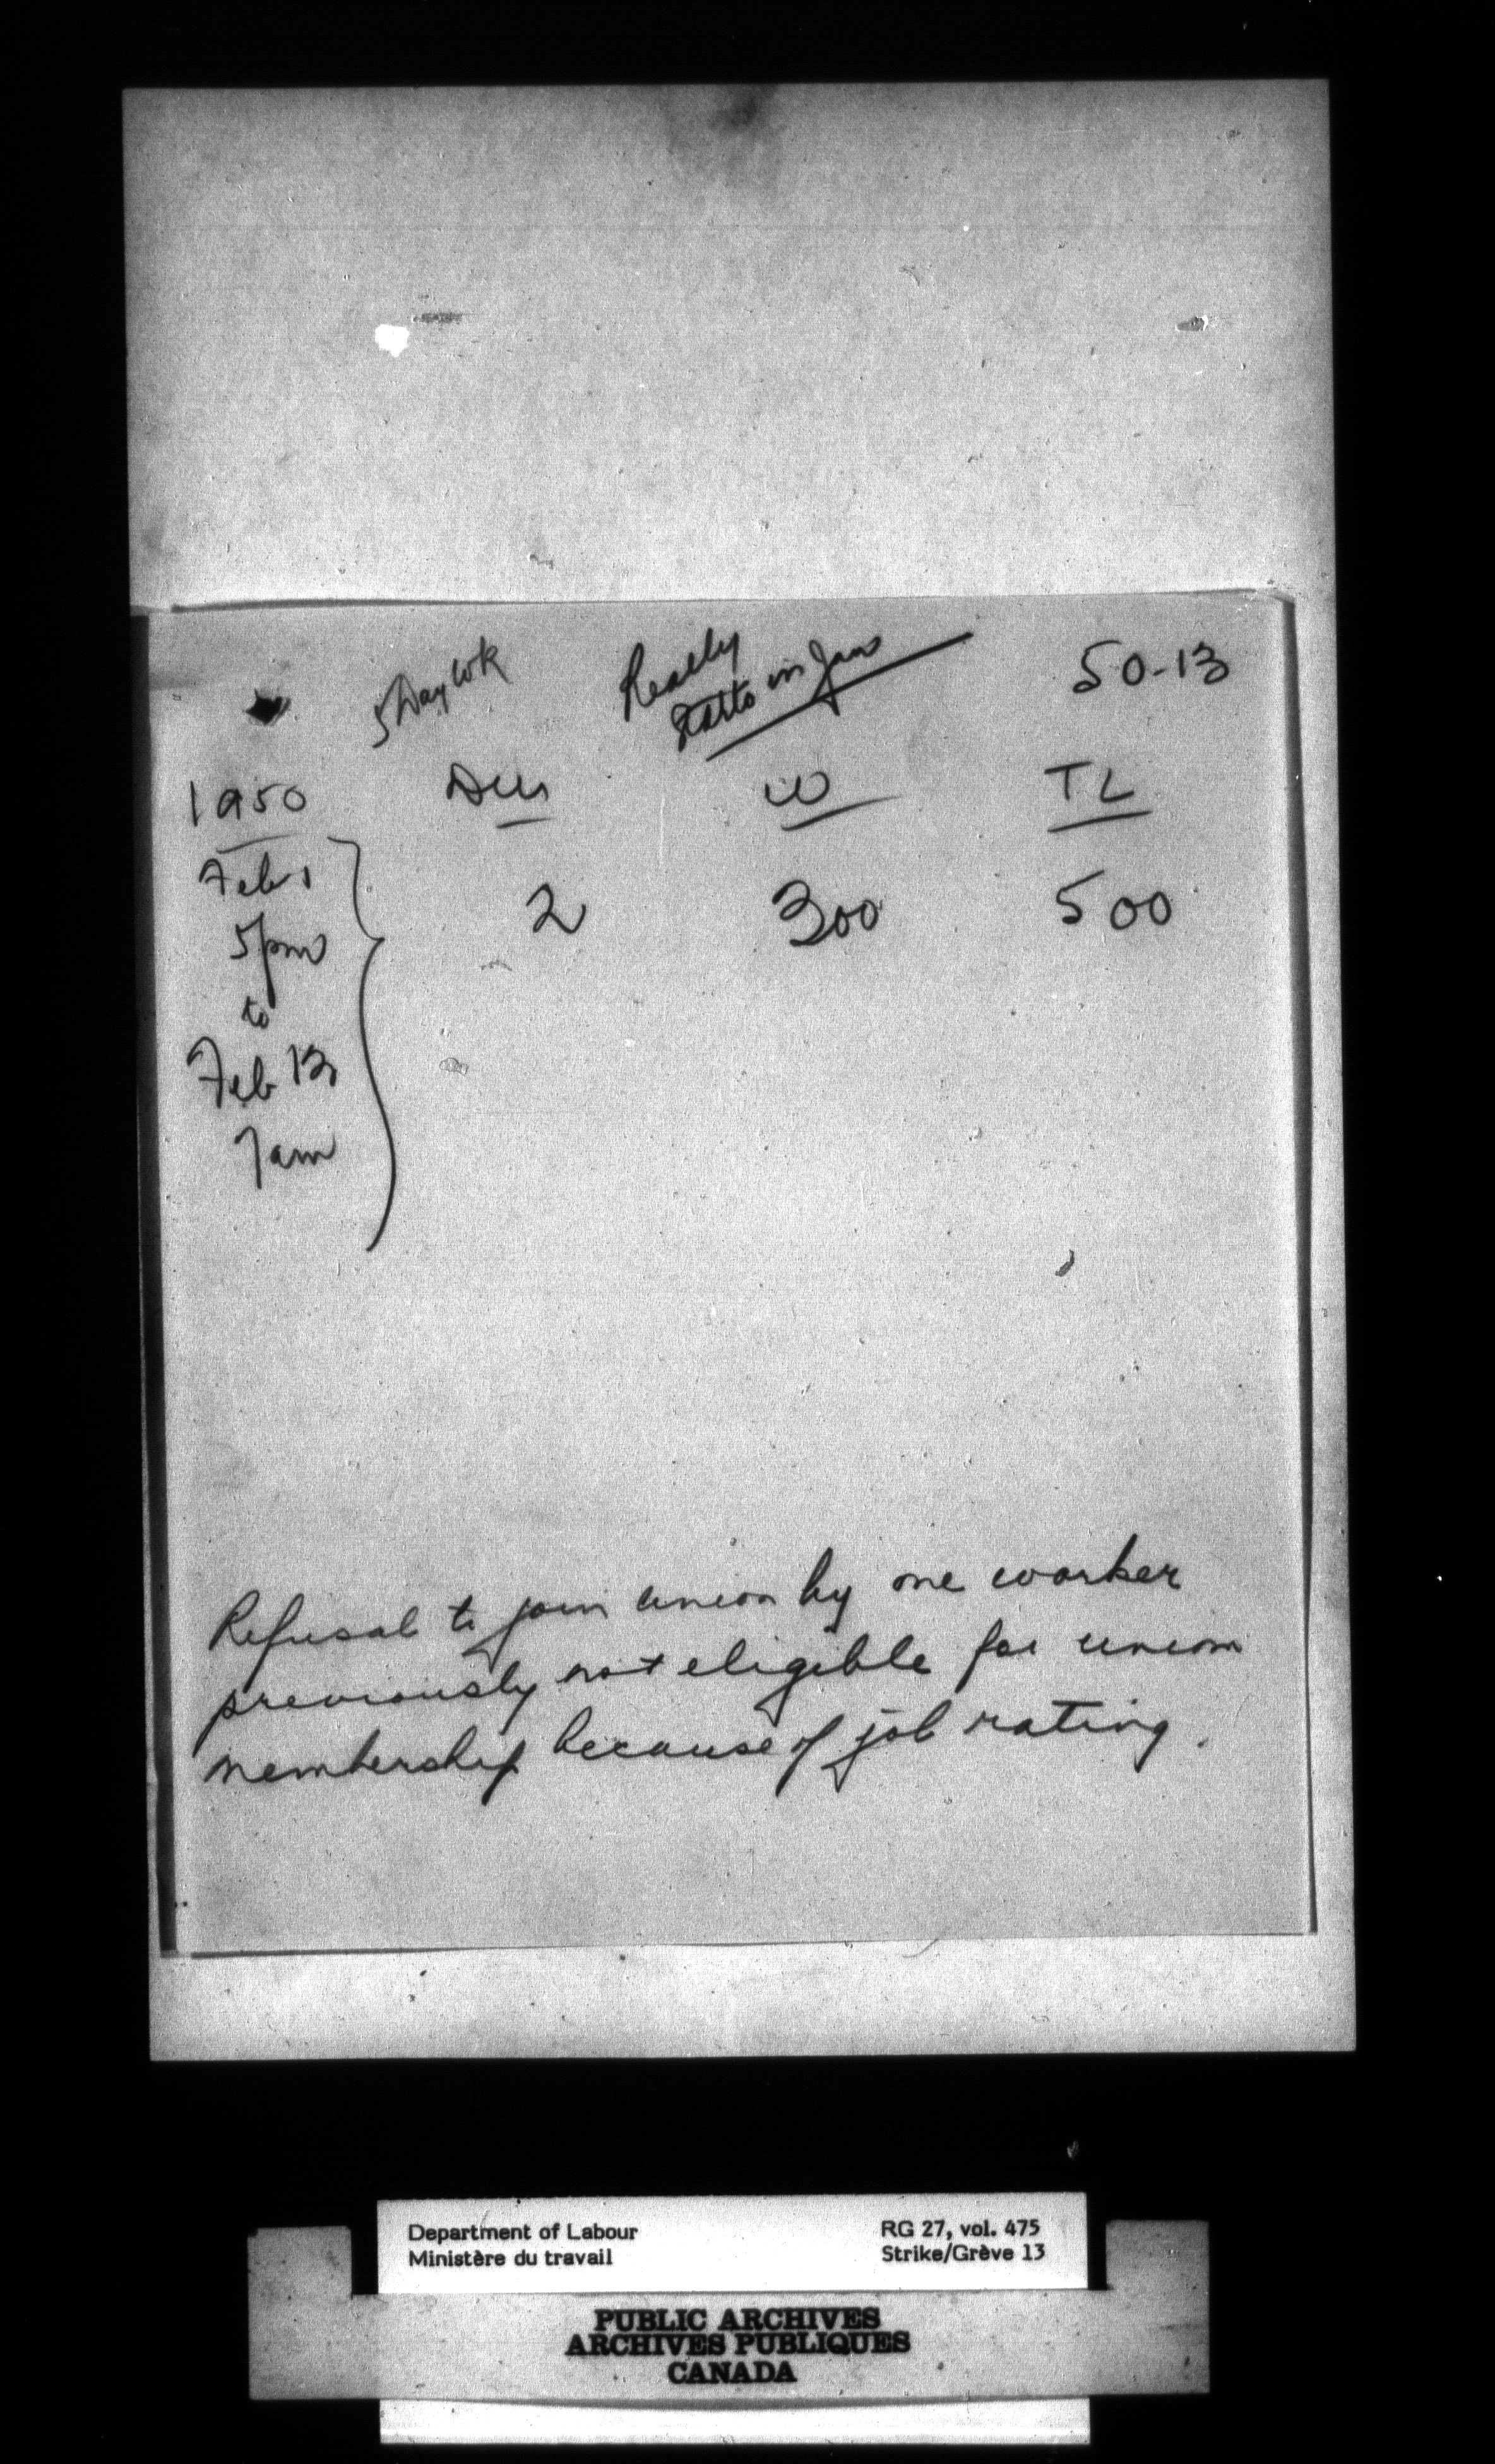 50-13
5 Day Wk
Really
Starts in Jan
1950
W
TL
Feb 1
5pm
to
Feb 13
7am
2
300
500
Refusal to join union by one worker
previously not eligible for union
membership because of job rating.
Department of Labour
Ministère du travail
RG 27, vol. 475
Strike/Grève 13
PUBLIC ARCHIVES
ARCHIVES PUBLIQUES
CANADA